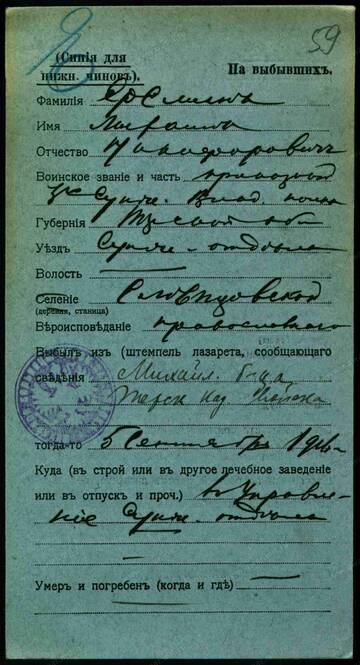 59
(Синія для
нижн. чиновъ).
На выбывшихъ.
Фамилія
Имя
Отчество Никифоровичъ
Воинское званіе и часть приказный
Сунж. Влад. полка
Губернія Терской обл
Уѣздъ Сунж. отдѣла
Волость
Селеніе Слѣпцовской
(деревня, станица)
Вѣроисповѣданіе православнаго
Выбылъ изъ (штемпель лазарета, сообщающаго
свѣдѣнія) Михайл. б-ца
Терск
тогда-то 5 Сентября 191
Куда (въ строй или въ другое лечебное заведеніе
или въ отпускъ и проч.) въ Управле-
ніе Сунж. отдѣла
Умеръ и погребенъ (когда и гдѣ)